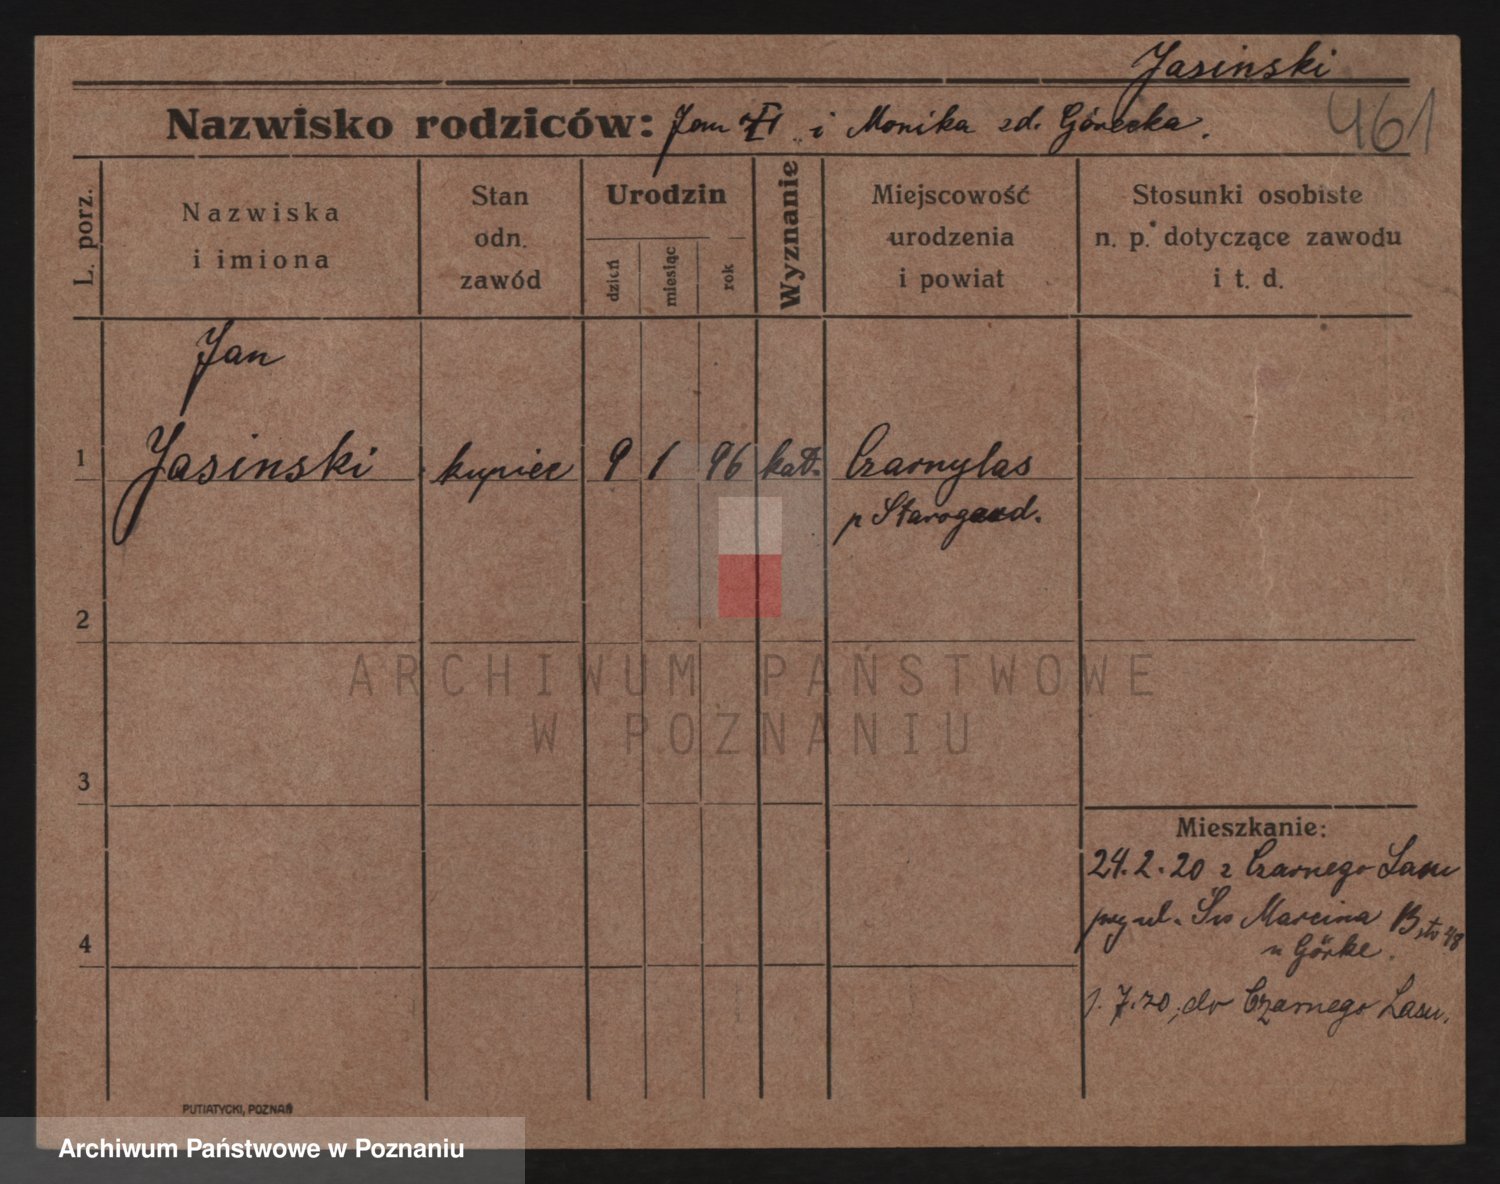 Jasinski
Nazwisko rodziców: Jan i Monika zd. Górecka.
461
L. porz.
Nazwiska
i imiona
Stan
odn.
zawód
Urodzin
dzień
miesiąc
rok
Wyznanie
Miejscowość
urodzenia
i powiat
Stosunki osobiste
n. p. dotyczące zawodu
i t. d.
Jan
1 Jasinski kupiec 9 1 96 kat. Czarnylas
p Starogard.
2
ARCHIWUM PAŃSTWOWE
W POZNANIU
3
Mieszkanie:
24.2.20 z Czarnego Lasu
ul. Św Marcina 48
u Görke.
1.7.20, do Czarnego Lasu.
4
PUTIATYCKI, POZNAŃ
Archiwum Państwowe w Poznaniu